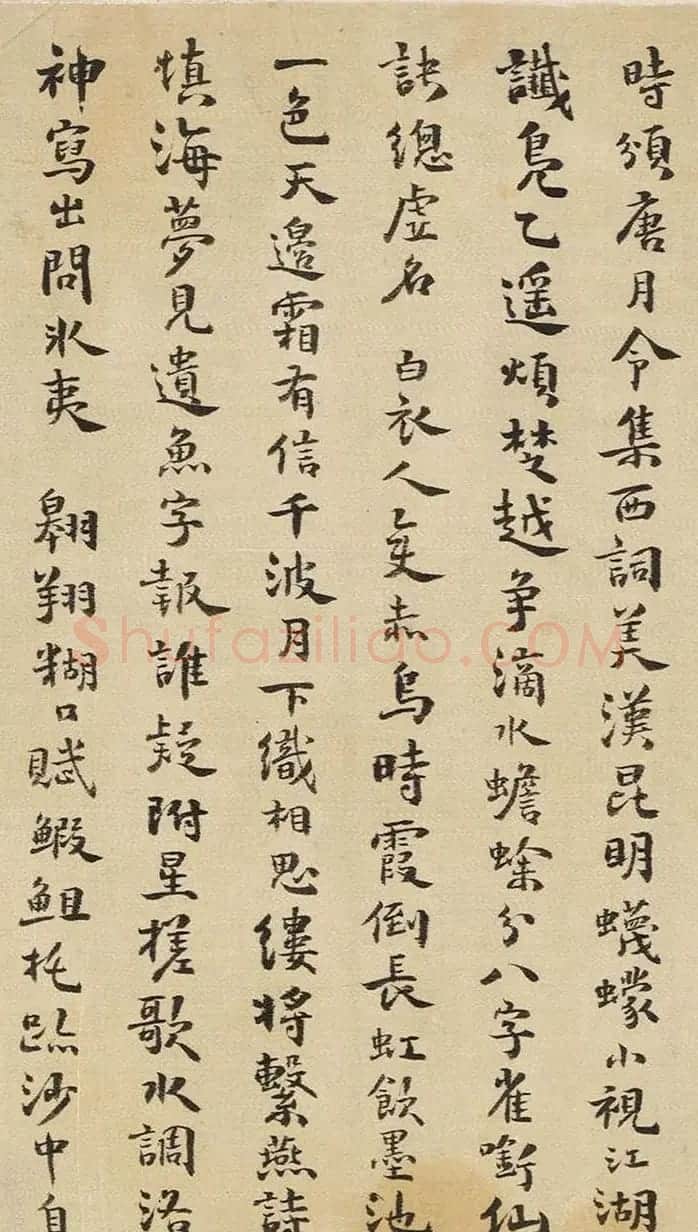 時頒唐月令集西詞美漢昆明蠛蠓小視江湖
讖鳬乙遥煩楚越争滴水蟾蜍分八字雀銜仙
訣總虚名 白衣人隻赤烏時霞倒長虹飲墨池
一色天邊霜有信千波月下織相思縷將繫燕詩
填海夢見遺魚字報誰疑附星槎歌水調洛
神寫出問氷夷 翱翔糊口賦鰕䱇托跡沙中自
Shufaziliao.COM